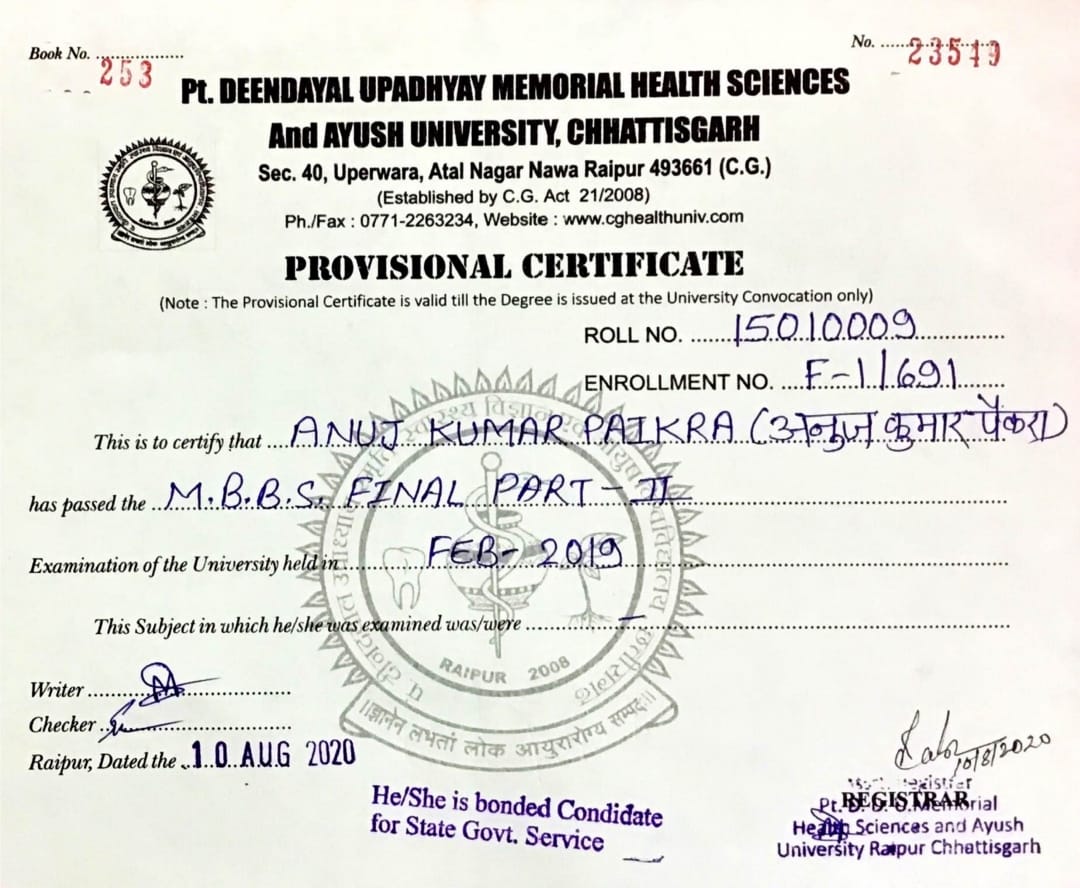 Book No. ................... 253
No. .................. 23519
Pt. DEENDAYAL UPADHYAY MEMORIAL HEALTH SCIENCES
And AYUSH UNIVERSITY, CHHATTISGARH
Sec. 40, Uperwara, Atal Nagar Nawa Raipur 493661 (C.G.)
(Established by C.G. Act 21/2008)
Ph./Fax : 0771-2263234, Website : www.cghealthuniv.com
RAIPUR 2008
PROVISIONAL CERTIFICATE
(Note : The Provisional Certificate is valid till the Degree is issued at the University Convocation only)
ROLL NO. 15010009
ENROLLMENT NO. F-1/691
This is to certify that ANUJ KUMAR PAIKRA (अनुज कुमार पैंकरा)
has passed the M.B.B.S. FINAL PART-II
Examination of the University held in FEB-2019
This Subject in which he/she was examined was/were —
RAIPUR 2008
॥ज्ञानेन लभतां लोक आयुरारोग्य सम्पदः॥
Writer
Checker
Raipur, Dated the 10 AUG 2020
10/8/2020
He/She is bonded Condidate
for State Govt. Service
REGISTRAR
Pt. D. D. U. Memorial
Health Sciences and Ayush
University Raipur Chhattisgarh